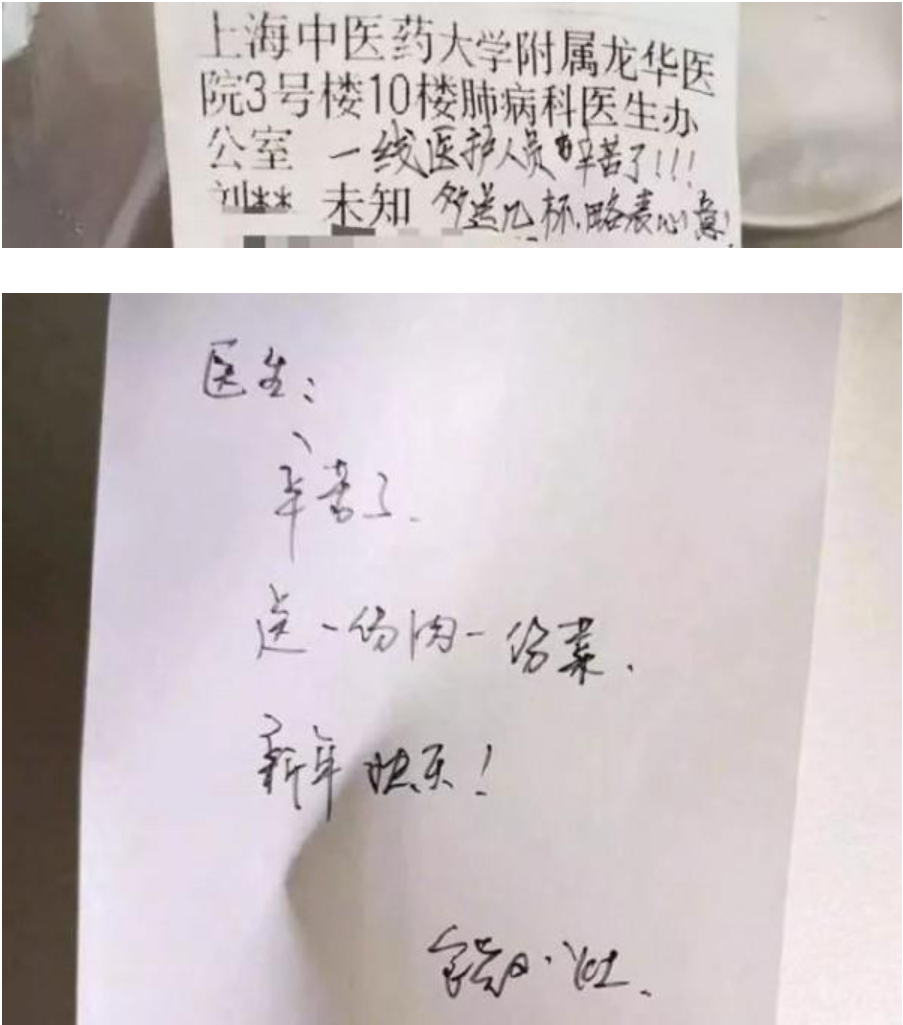 上海中医药大学附属龙华医
院3号楼10楼肺病科医生办
公室 一线医护人员辛苦了!!!
刘** 未知 多送几杯,略表心意!
医生:
辛苦了.
送一份肉一份菜.
新年快乐!